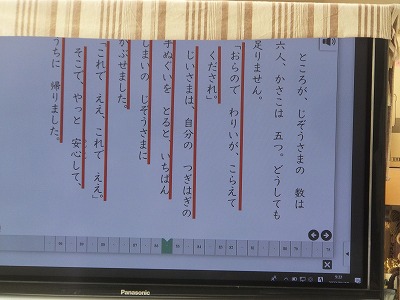 ところが、じぞうさまの 数は
六人、かさこは 五つ。どうしても
足りません。
「おらので わりいが、こらえて
くだされ。」
じいさまは、自分の つぎはぎの
手ぬぐいを とると、いちばん
しまいの じぞうさまに
かぶせました。
「これで ええ、これで ええ。」
そこで、やっと 安心して、
うちに 帰りました。
Panasonic